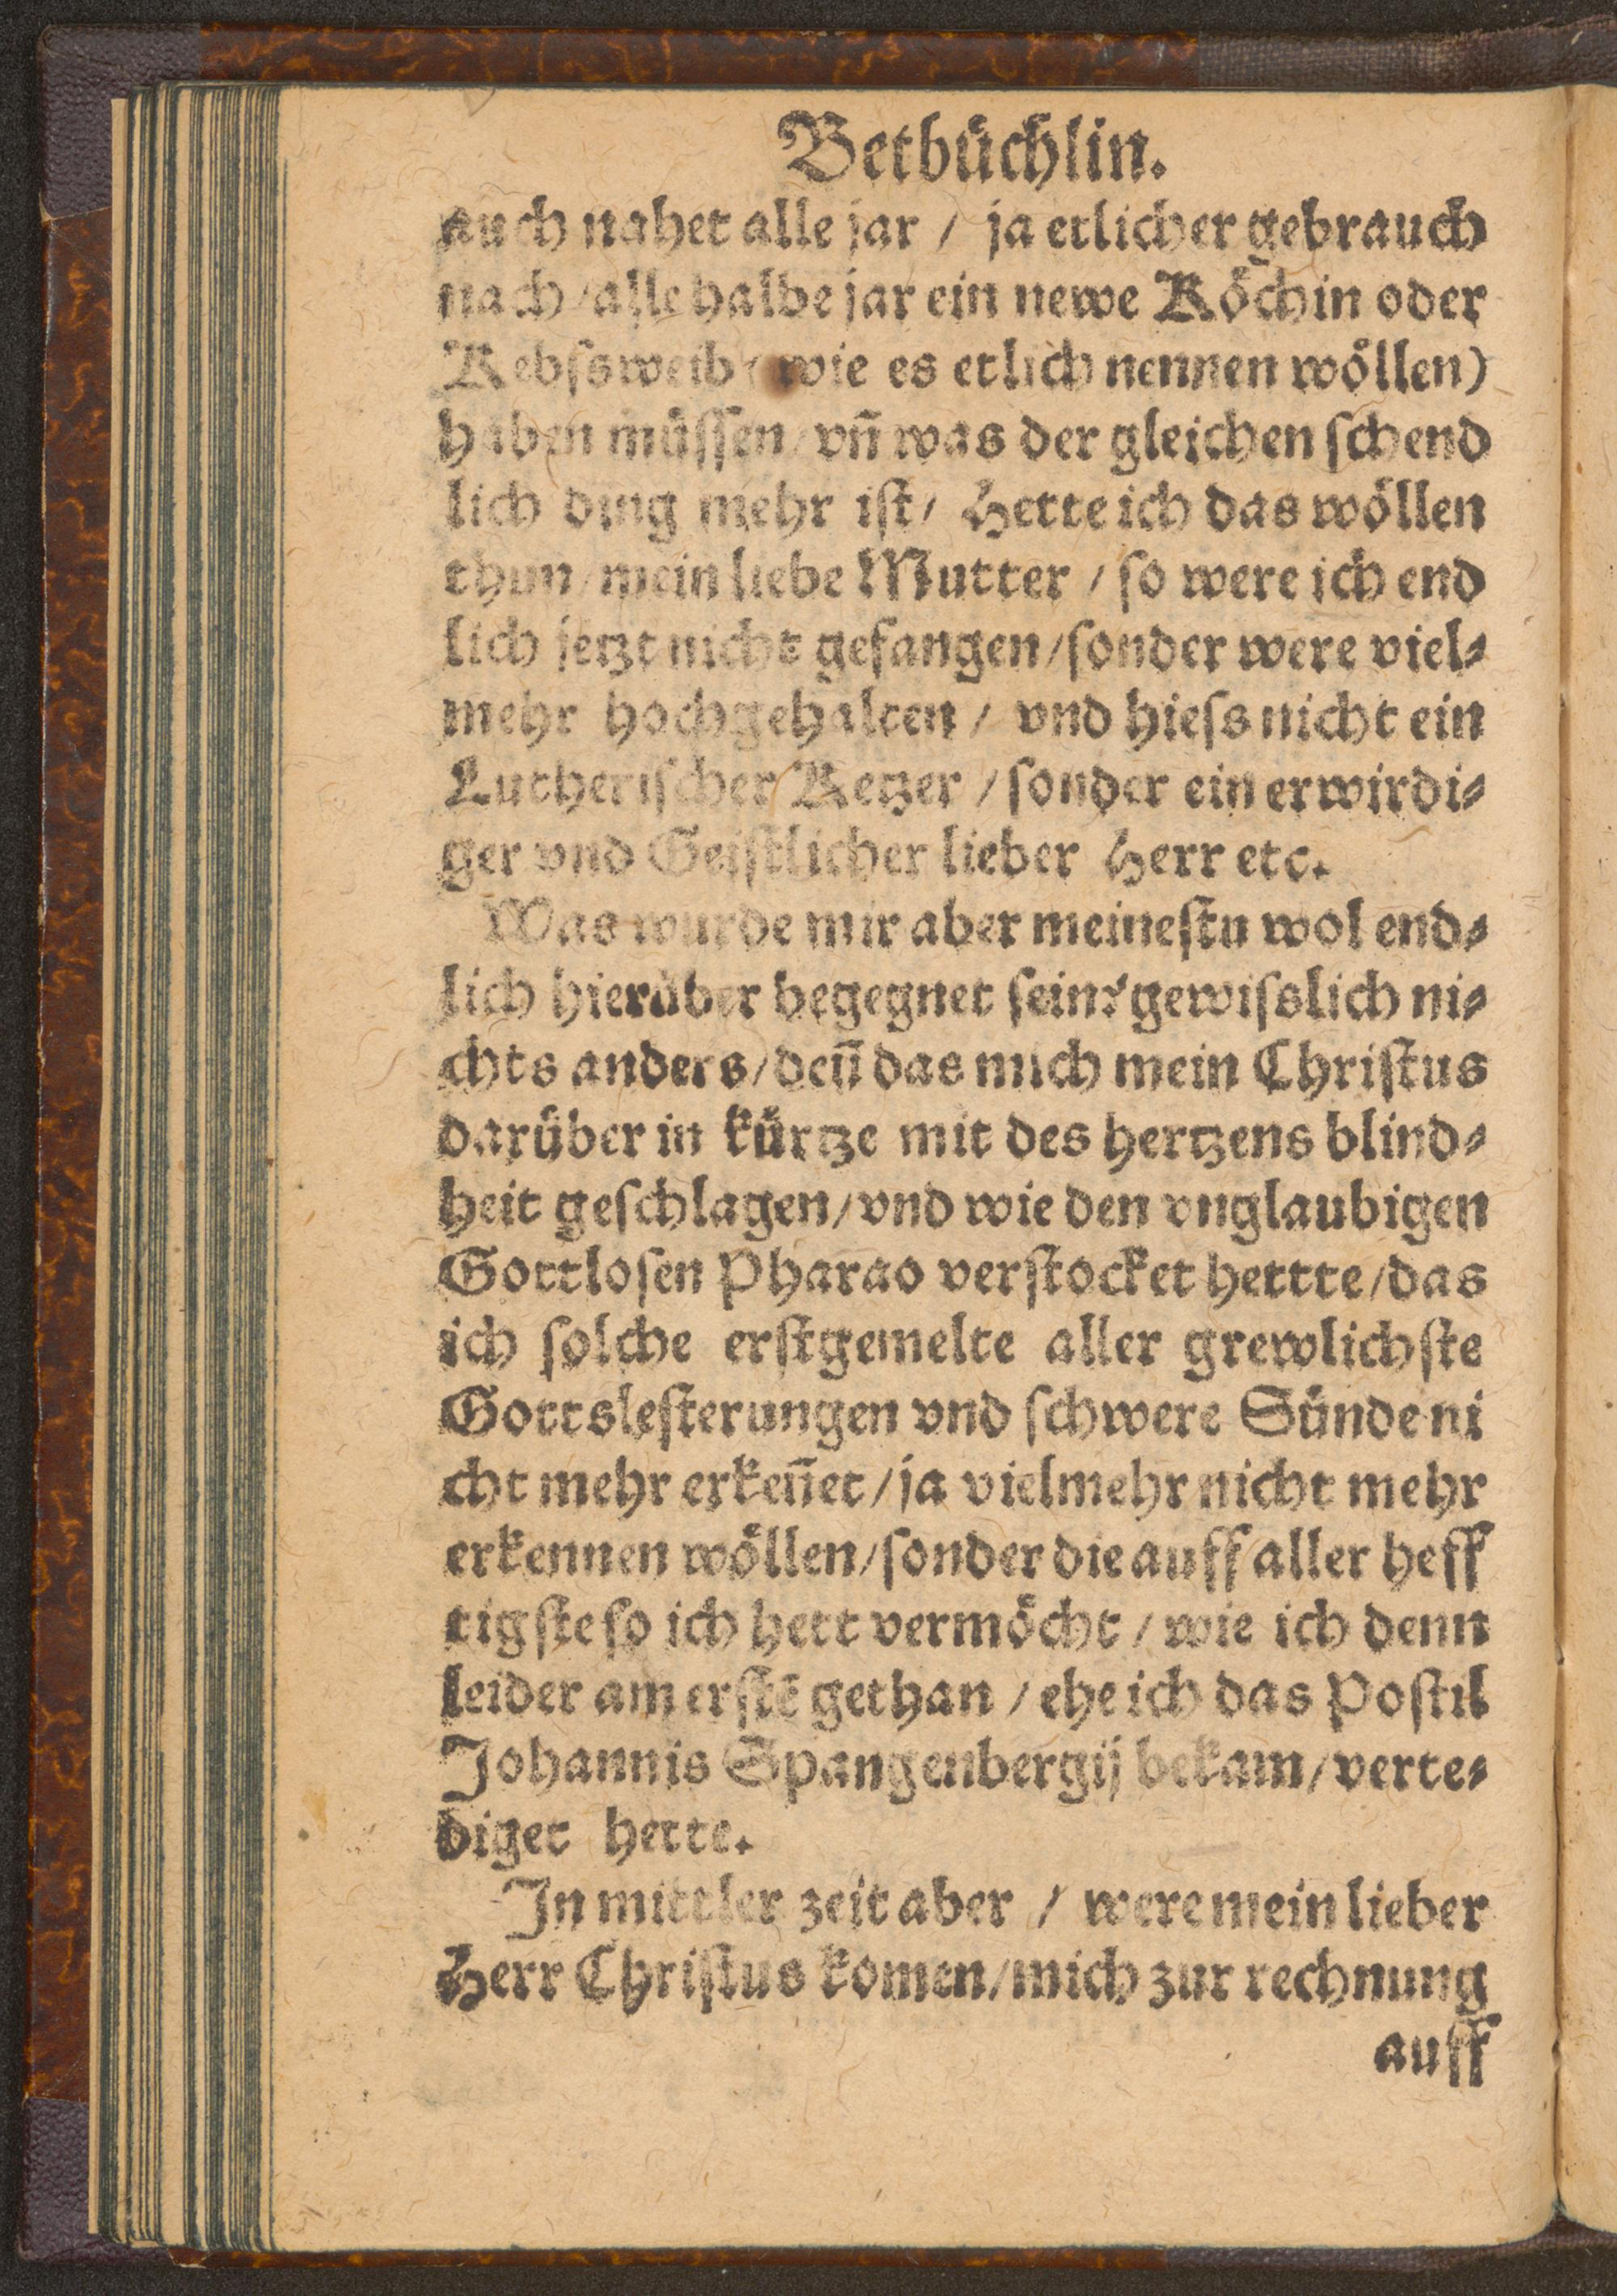 Betbüchlin.
auch nahet alle jar / ja etlicher gebrauch
nach / alle halbe jar ein newe Köchin oder
Kebſsweib (wie es etlich nennen wöllen)
haben müſſen / vñ was der gleichen ſchend
lich ding mehr iſt / Hette ich das wöllen
thun / mein liebe Mutter / ſo were ich end
lich jetzt nicht gefangen / ſonder were viel⸗
mehr hochgehalten / vnd hieſs nicht ein
Lutheriſcher Ketzer / ſonder ein erwirdi⸗
ger vnd Geiſtlicher lieber Herr etc.
Was wurde mir aber meineſtu wol end⸗
lich hierüber begegnet ſein? gewiſslich ni⸗
chts anders / deñ das mich mein Chriſtus
darüber in kürtze mit des hertzens blind⸗
heit geſchlagen / vnd wie den vnglaubigen
Gottloſen Pharao verſtocket hettte / das
ich ſolche erſtgemelte aller grewlichſte
Gottsleſterungen vnd ſchwere Sünde ni
cht mehr erkeñet / ja vielmehr nicht mehr
erkennen wöllen / ſonder die auff aller heff
tigſte ſo ich hett vermöcht / wie ich denn
leider am erſtē gethan / ehe ich das Poſtil
Johannis Spangenbergij bekam / verte⸗
diget hette.
In mittler zeit aber / were mein lieber
Herr Chriſtus komen / mich zur rechnung
auff